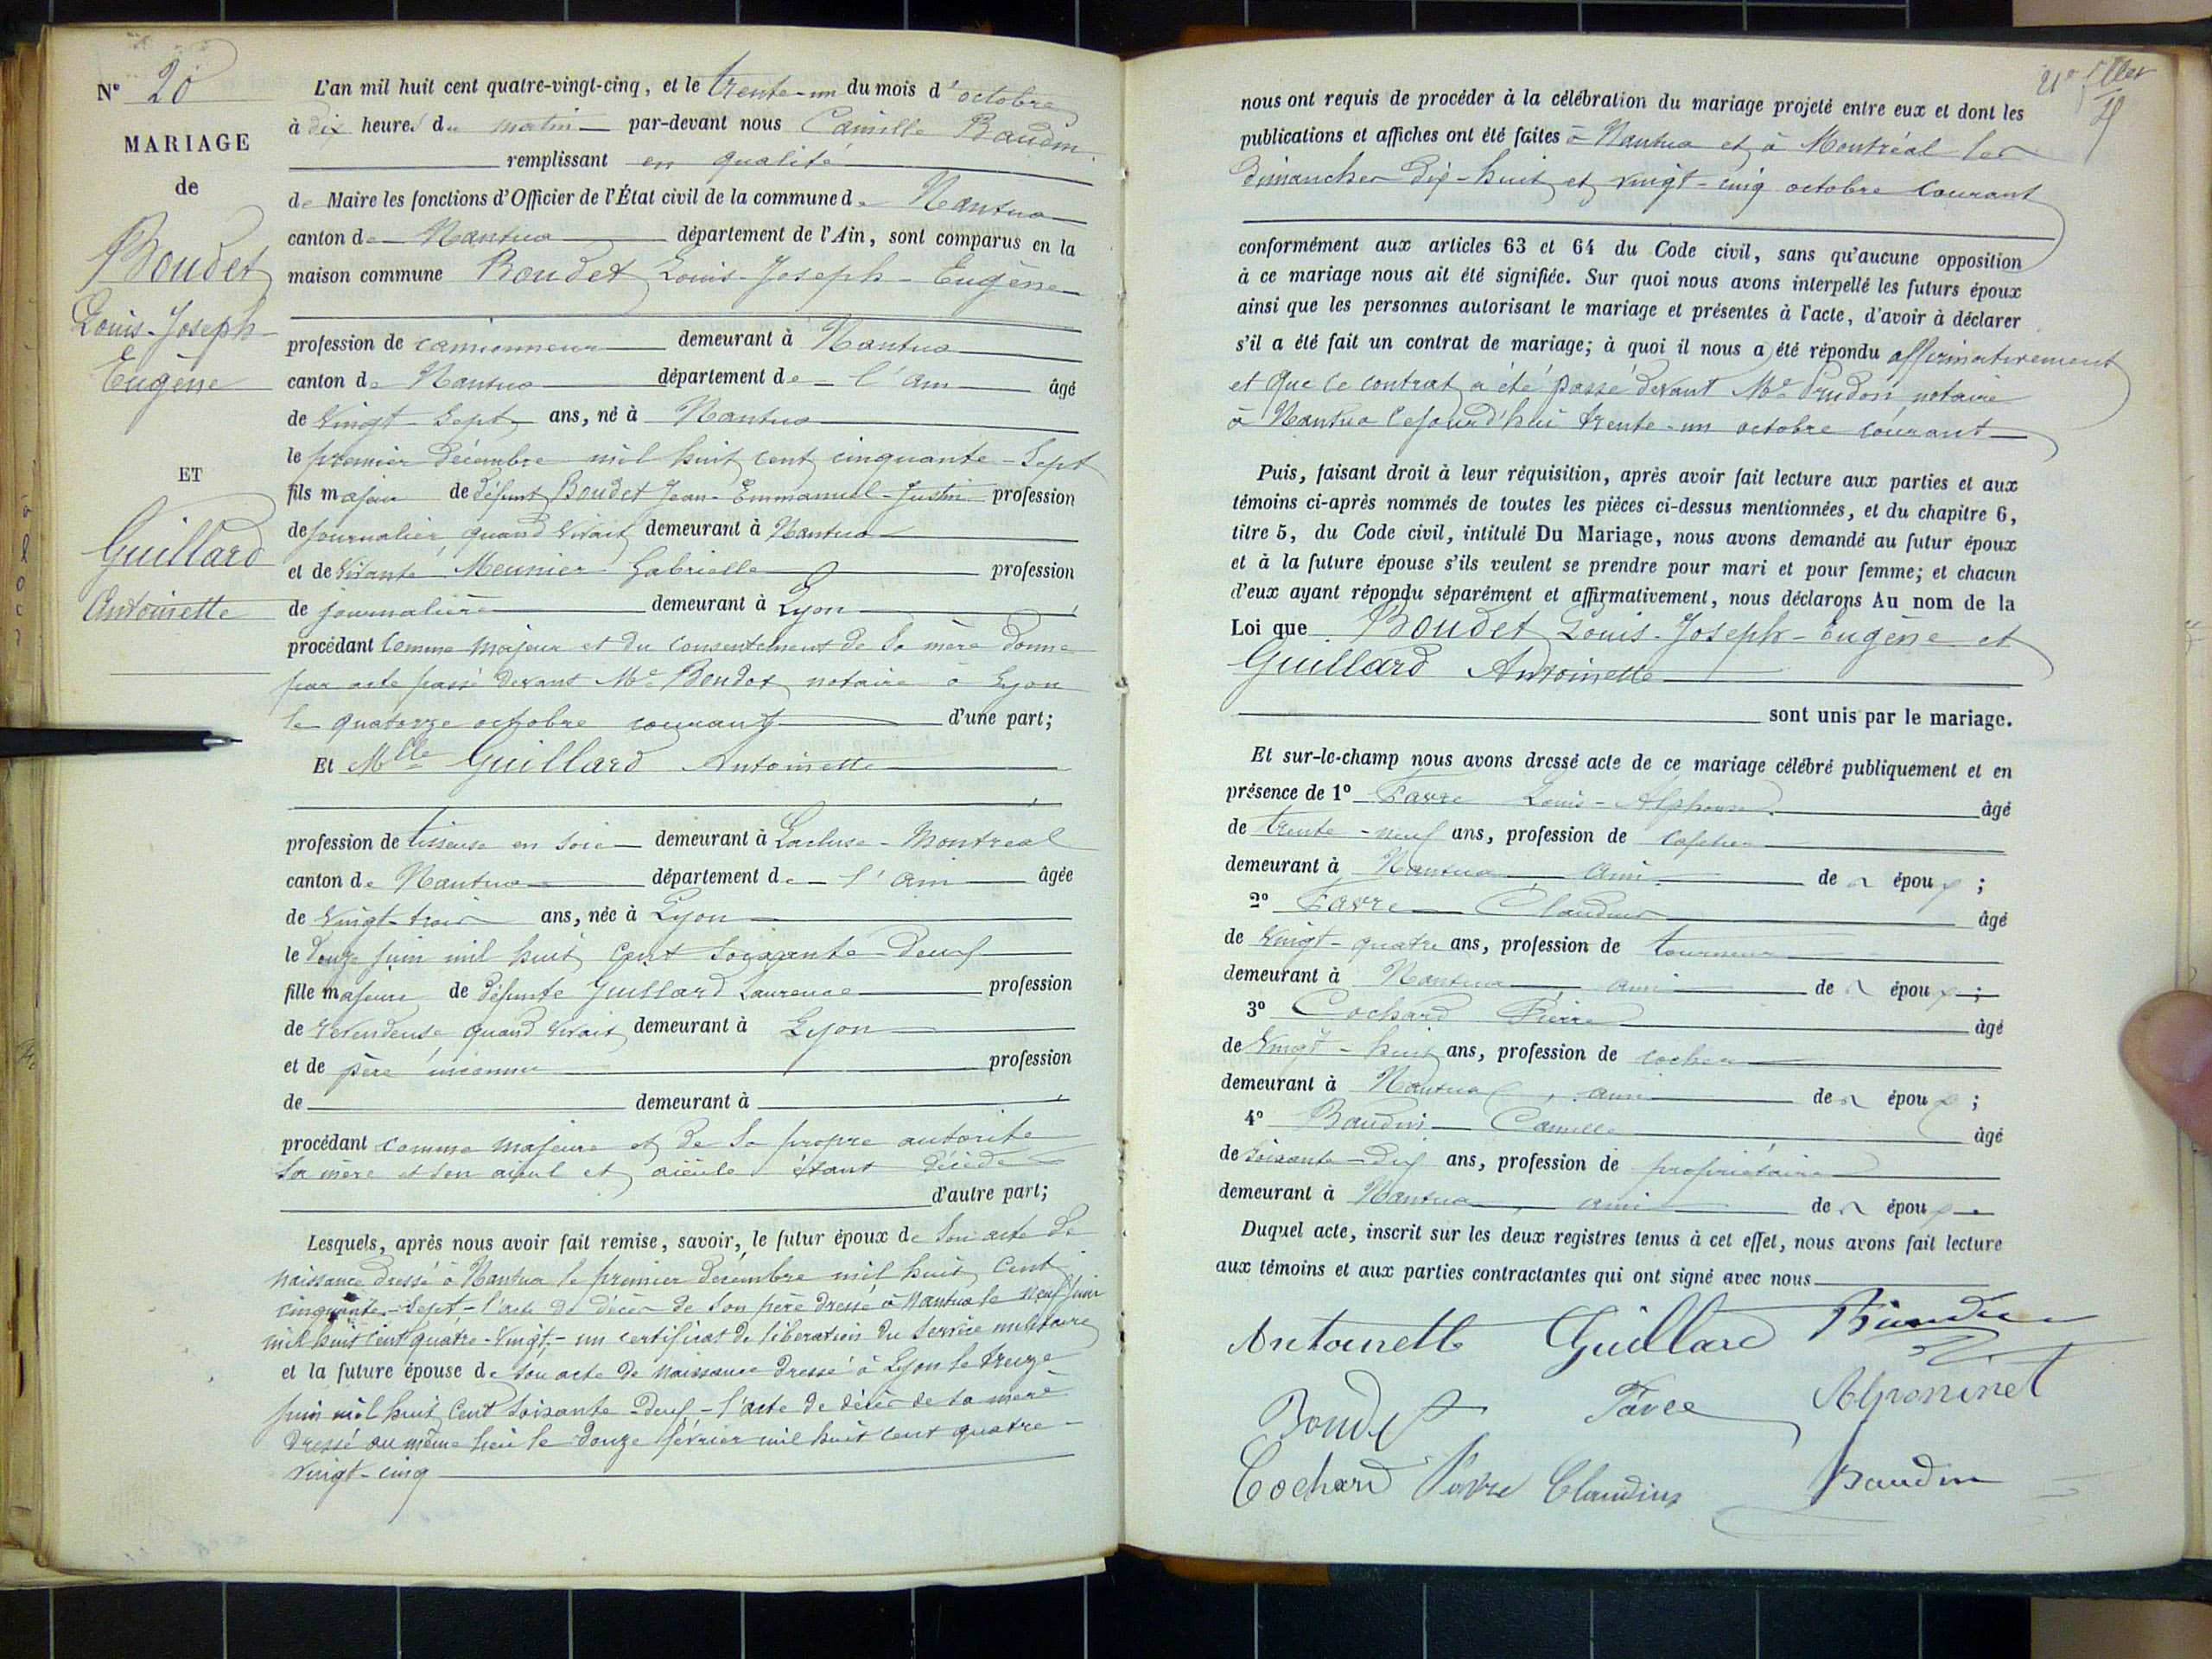 N° 20
MARIAGE
de
Boudet
Louis-Joseph-
Eugène
ET
Guillard
Antoinette
L'an mil huit cent quatre-vingt-cinq, et le trente-un du mois d'octobre
à dix heures du matin par-devant nous Camille Baudin
remplissant en qualité
de Maire les fonctions d'Officier de l'État civil de la commune de Nantua
canton de Nantua département de l'Ain, sont comparus en la
maison commune Boudet Louis-Joseph-Eugène
profession de camionneur demeurant à Nantua
canton de Nantua département de l'Ain âgé
de vingt-sept ans, né à Nantua
le premier décembre mil huit cent cinquante-sept
fils majeur de défunt Boudet Jean-Emmanuel-Justin profession
de journalier quand vivait demeurant à Nantua
et de vivante Meunier Gabrielle profession
de journalière demeurant à Lyon
procédant comme majeur et du consentement de sa mère donné
par acte passé devant Me Boudot notaire à Lyon
le quatorze octobre courant d'une part;
Et Mlle Guillard Antoinette
profession de tisseuse en soie demeurant à Lacluse-Montreal
canton de Nantua département de l'Ain âgée
de vingt-trois ans, née à Lyon
le douze juin mil huit cent soixante-deux
fille majeure de défunte Guillard Laurence profession
de revendeuse quand vivait demeurant à Lyon
et de père inconnu profession
de demeurant à
procédant comme majeure et de sa propre autorité
sa mère et son aïeul et aïeule étant décédés
d'autre part;
Lesquels, après nous avoir fait remise, savoir, le futur époux de son acte de
naissance dressé à Nantua le premier décembre mil huit cent
cinquante-sept - l'acte de décès de son père dressé à Nantua le neuf juin
mil huit cent quatre-vingt - un certificat de libération du service militaire
et la future épouse de son acte de naissance dressé à Lyon le treize
juin mil huit cent soixante-deux - l'acte de décès de sa mère
dressé au même lieu le douze février mil huit cent quatre-
vingt-cinq
21e
nous ont requis de procéder à la célébration du mariage projeté entre eux et dont les
publications et affiches ont été faites à Nantua et à Montréal les
dimanches dix-huit et vingt-cinq octobre courant
conformément aux articles 63 et 64 du Code civil, sans qu'aucune opposition
à ce mariage nous ait été signifiée. Sur quoi nous avons interpellé les futurs époux
ainsi que les personnes autorisant le mariage et présentes à l'acte, d'avoir à déclarer
s'il a été fait un contrat de mariage; à quoi il nous a été répondu affirmativement
et que ce contrat a été passé devant Me Prudon notaire
à Nantua cejourd'hui trente-un octobre courant
Puis, faisant droit à leur réquisition, après avoir fait lecture aux parties et aux
témoins ci-après nommés de toutes les pièces ci-dessus mentionnées, et du chapitre 6,
titre 5, du Code civil, intitulé Du Mariage, nous avons demandé au futur époux
et à la future épouse s'ils veulent se prendre pour mari et pour femme; et chacun
d'eux ayant répondu séparément et affirmativement, nous déclarons Au nom de la
Loi que Boudet Louis-Joseph-Eugène et
Guillard Antoinette
sont unis par le mariage.
Et sur-le-champ nous avons dressé acte de ce mariage célébré publiquement et en
présence de 1° Favre Louis-Alphonse âgé
de trente-neuf ans, profession de cafetier
demeurant à Nantua, ami des époux;
2° Favre Claudius âgé
de vingt-quatre ans, profession de tourneur
demeurant à Nantua, ami des époux;
3° Cochard Pierre âgé
de vingt-huit ans, profession de cocher
demeurant à Nantua, ami des époux;
4° Baudin Camille âgé
de soixante-dix ans, profession de propriétaire
demeurant à Nantua, ami des époux
Duquel acte, inscrit sur les deux registres tenus à cet effet, nous avons fait lecture
aux témoins et aux parties contractantes qui ont signé avec nous
Antoinette Guillard Baudin
Boudet Favre
Cochard Favre Claudius Baudin